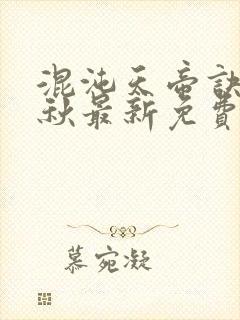 混沌天帝诀
秋最新免費
慕宛凝